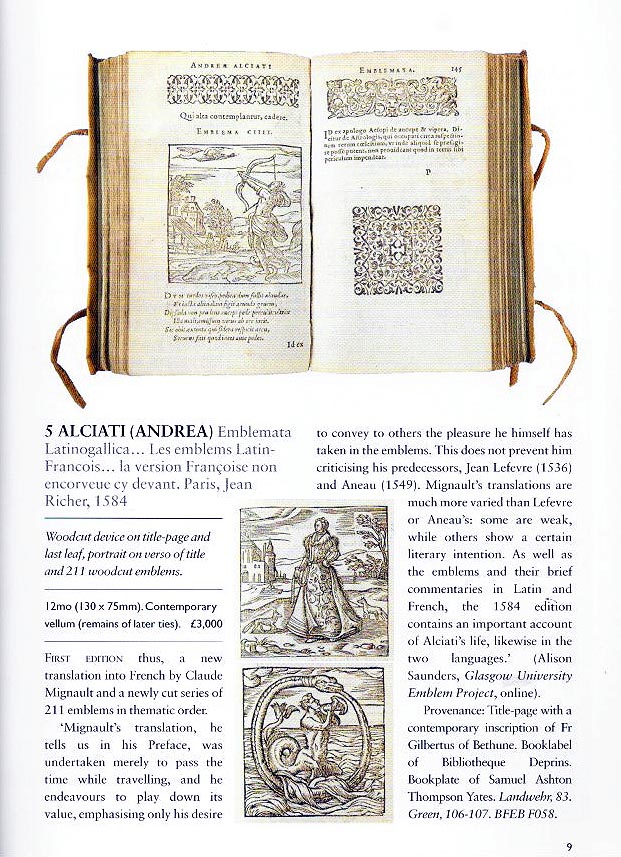 ANDREÆ ALCIATI
Qui alta contemplantur, cadere.
EMBLEMA CIIII.
Idex
EMBLEMATA. 145
ID ex apologo Aesopi de aucupe & vipera, Di-
P
5 ALCIATI (ANDREA) Emblemata
Latinogallica... Les emblems Latin-
Francois... la version Françoise non
encorveue cy devant. Paris, Jean
Richer, 1584
Woodcut device on title-page and
last leaf, portrait on verso of title
and 211 woodcut emblems.
12mo (130 x 75mm). Contemporary
vellum (remains of later ties). £3,000
FIRST EDITION thus, a new
translation into French by Claude
Mignault and a newly cut series of
211 emblems in thematic order.
‘Mignault's translation, he
tells us in his Preface, was
undertaken merely to pass the
time while travelling, and he
endeavours to play down its
value, emphasising only his desire
to convey to others the pleasure he himself has
taken in the emblems. This does not prevent him
criticising his predecessors, Jean Lefevre (1536)
and Aneau (1549). Mignault's translations are
much more varied than Lefevre
or Aneau's: some are weak,
while others show a certain
literary intention. As well as
the emblems and their brief
commentaries in Latin and
French, the 1584 edition
contains an important account
of Alciati's life, likewise in the
two languages.’ (Alison
Saunders, Glasgow University
Emblem Project, online).
Provenance: Title-page with a
contemporary inscription of Fr
Gilbertus of Bethune. Booklabel
of Bibliotheque Deprins.
Bookplate of Samuel Ashton
Thompson Yates. Landwehr, 83.
Green, 106-107. BFEB F058.
9